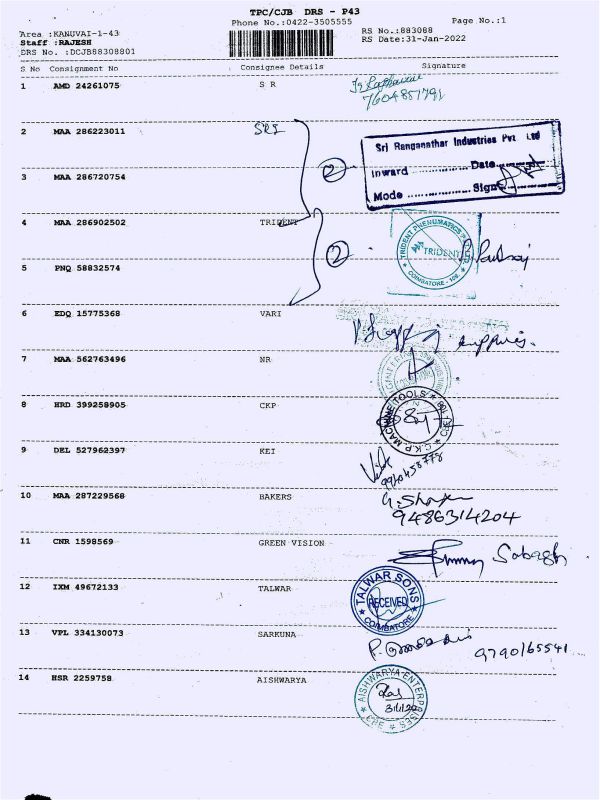 TPC/CJB DRS - P43
Phone No.:0422-3505555
Page No.:1
Area :KANUVAI-1-43
RS No.:883088
Staff :RAJESH
RS Date:31-Jan-2022
DRS No. :DCJB88308801
S No Consignment No Consignee Details Signature
1 AMD 24261075 S R
7604857791
2 MAA 286223011 SRI
Sri Ranganathar Industries Pvt Ltd
Inward Date
Mode Sign
3 MAA 286720754
2
4 MAA 286902502 TRIDENT
TRIDENT PNEUMATICS P LTD.
TRIDENT
COIMBATORE - 109.
2
5 PNQ 58832574
6 EDQ 15775368 VARI
7 MAA 562763496 NR
8 HRD 399258905 CKP
C.K.P. MACHINE TOOLS
9 DEL 527962397 KEI
10 MAA 287229568 BAKERS
9486314204
11 CNR 1598569 GREEN VISION
12 IXM 49672133 TALWAR
TALWAR SONS
RECEIVED
COIMBATORE
13 VPL 334130073 SARKUNA
9790165541
14 HSR 2259758 AISHWARYA
AISHWARYA ENTERPRISES
CBE